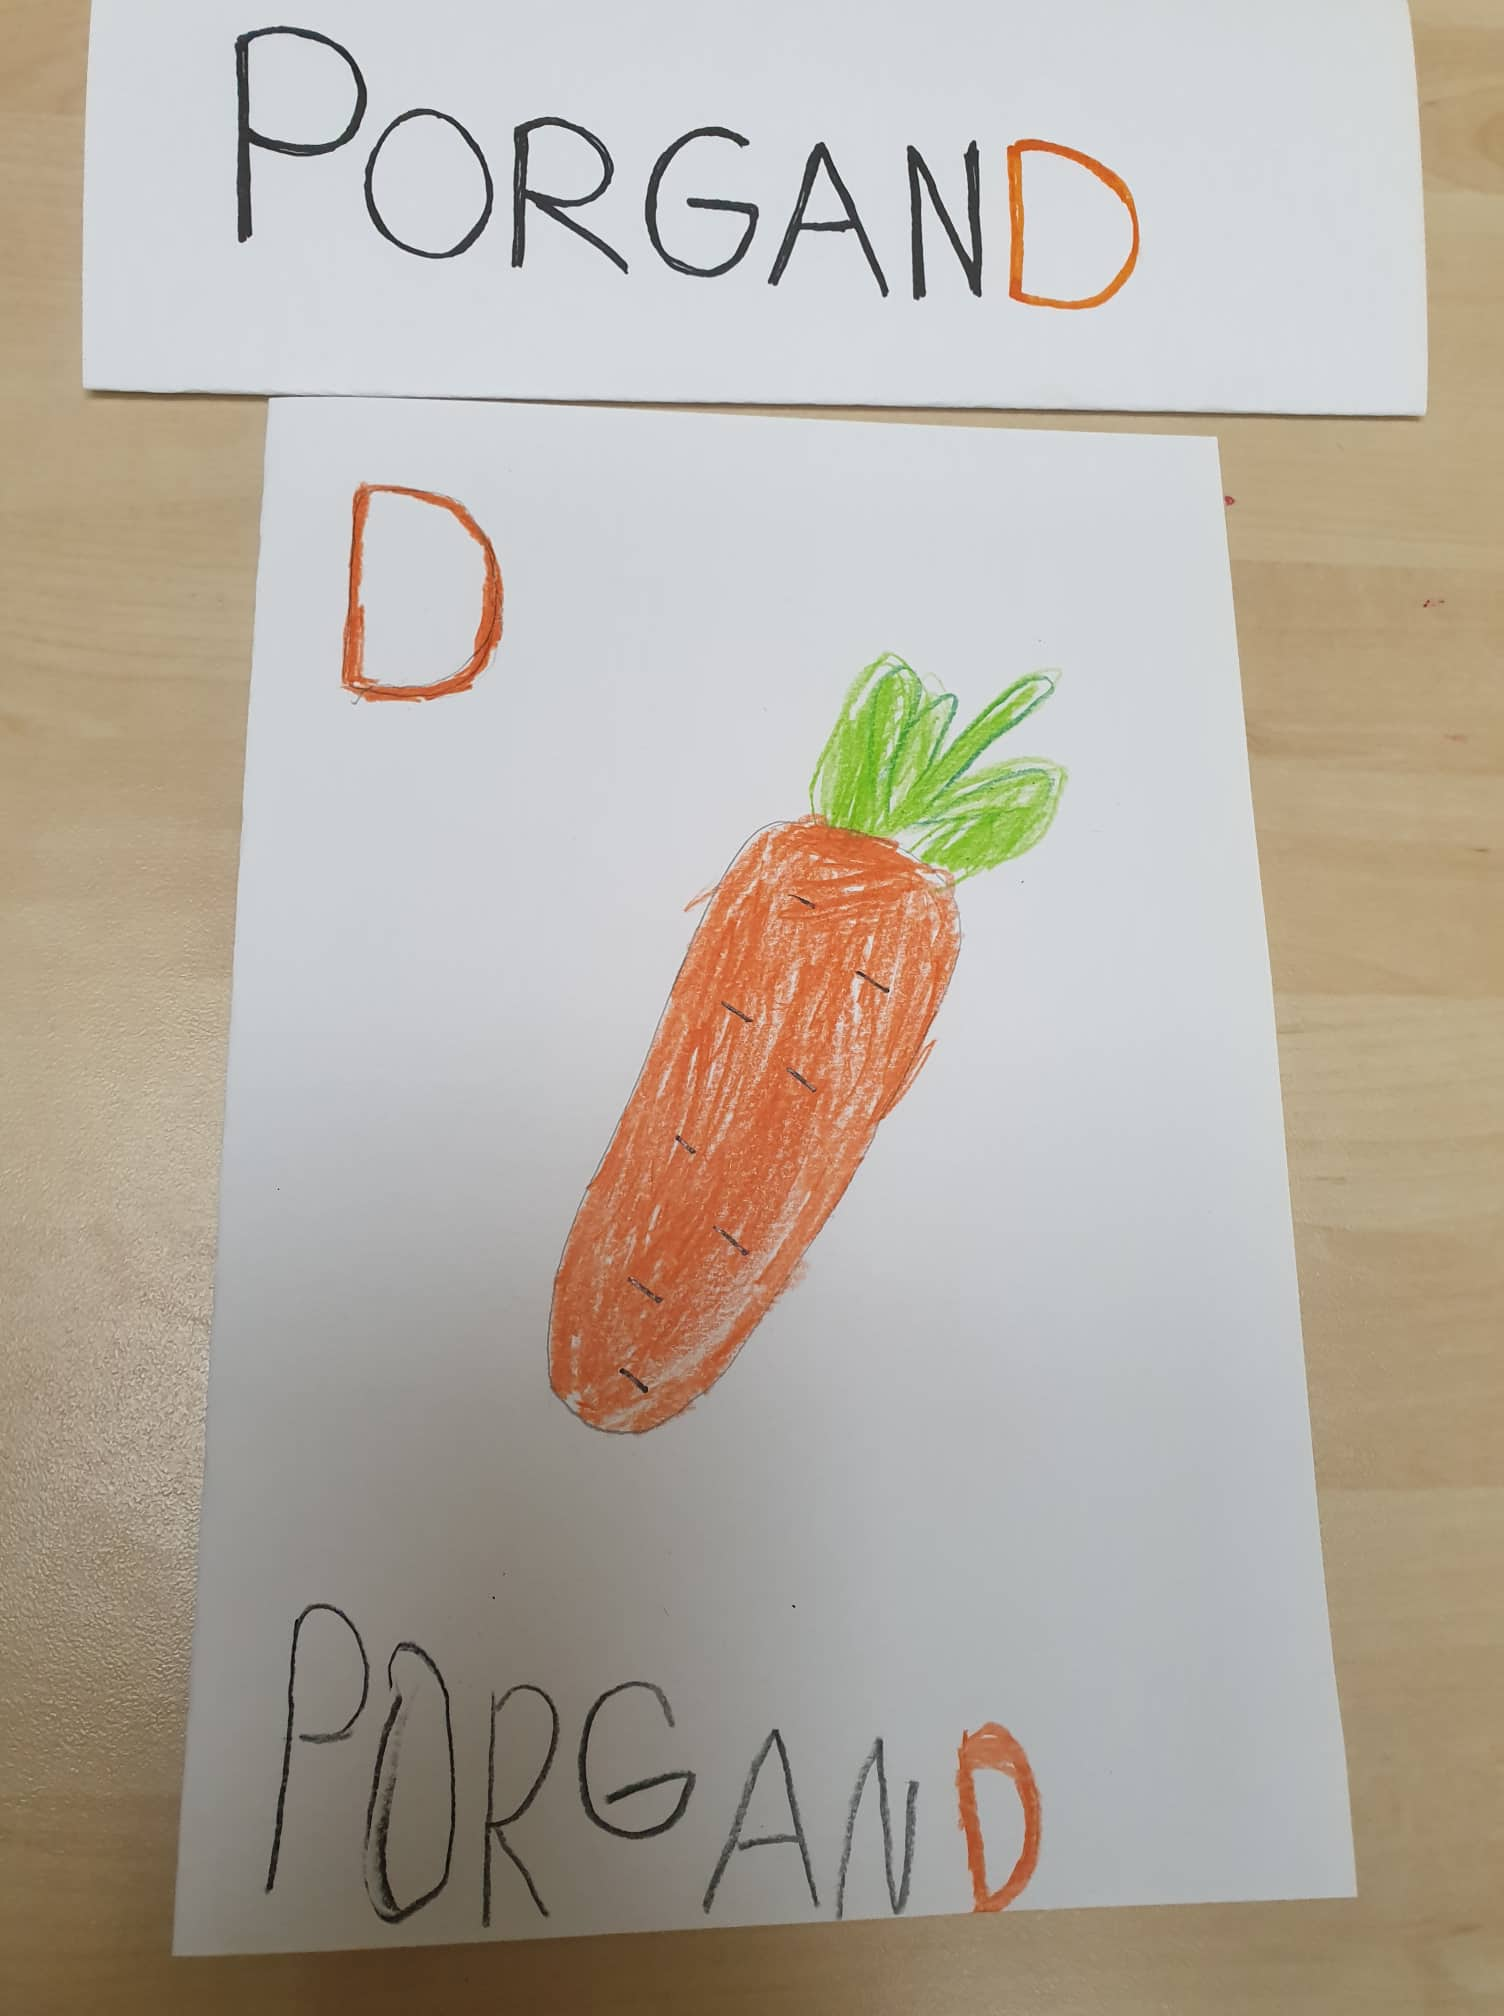 PORGAND
D
PORGAND